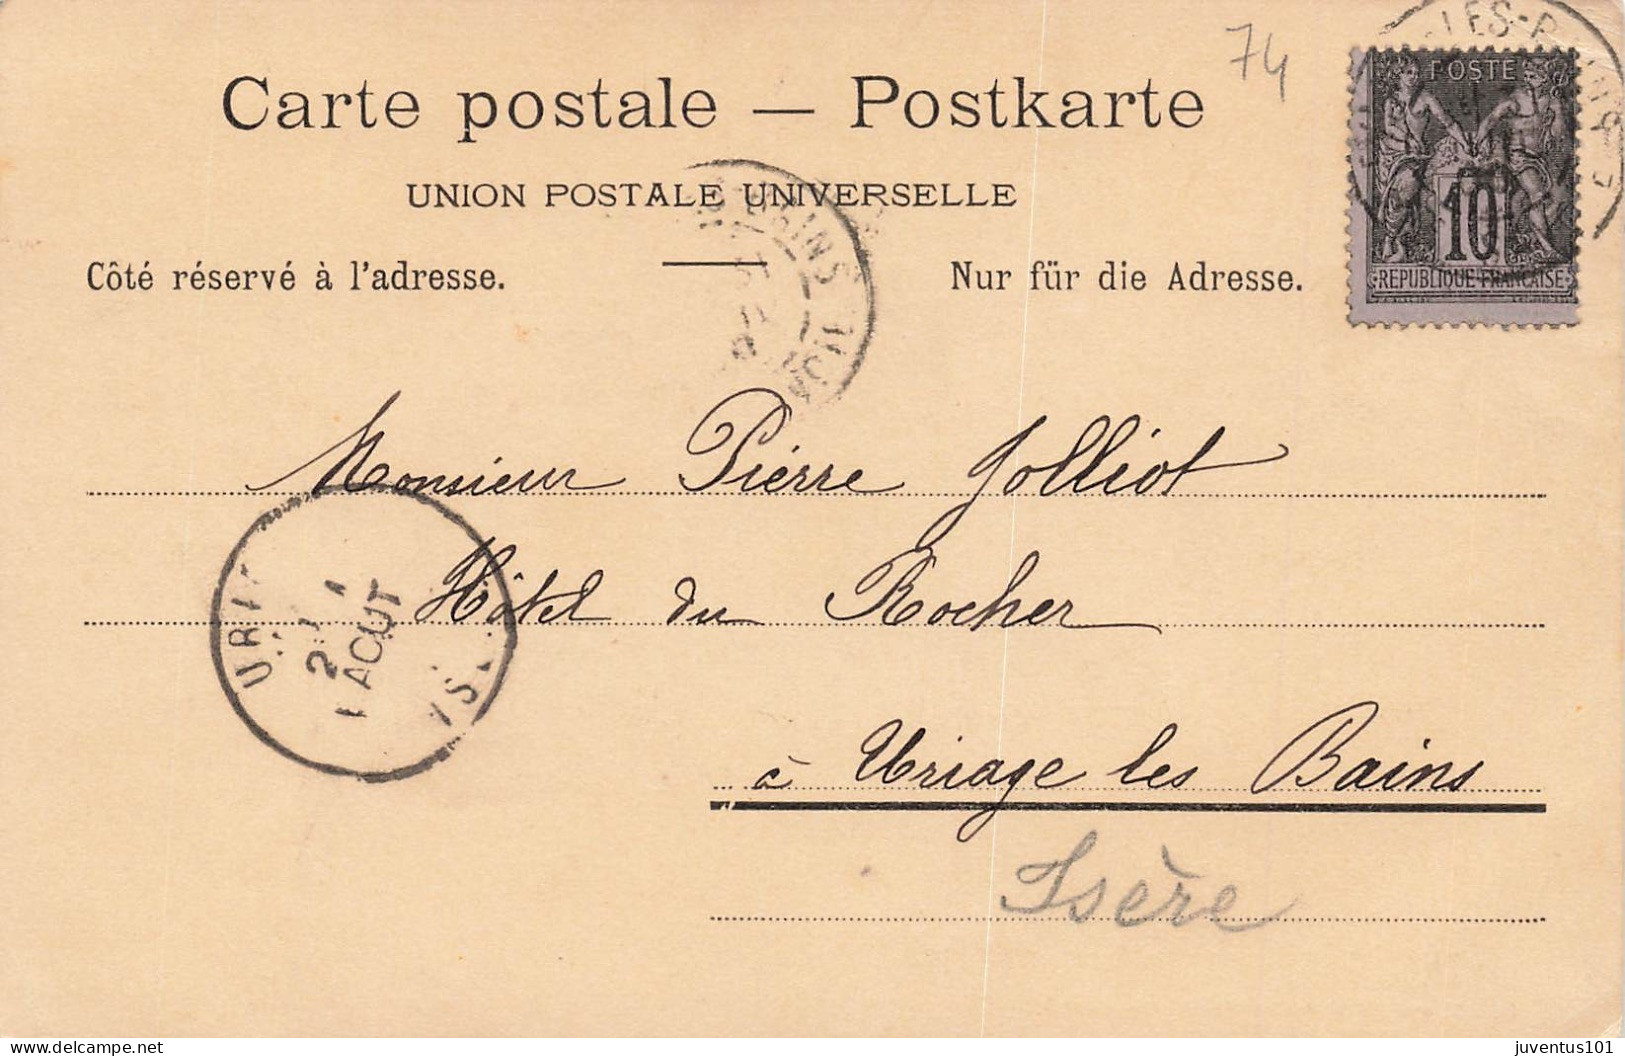 74
Carte postale — Postkarte
UNION POSTALE UNIVERSELLE
Côté réservé à l'adresse.
Nur für die Adresse.
POSTE
10
REPUBLIQUE FRANÇAISE
Monsieur Pierre Jolliot
Hôtel du Rocher
à Uriage les Bains
Isère
AOUT
delcampe.net
juventus101